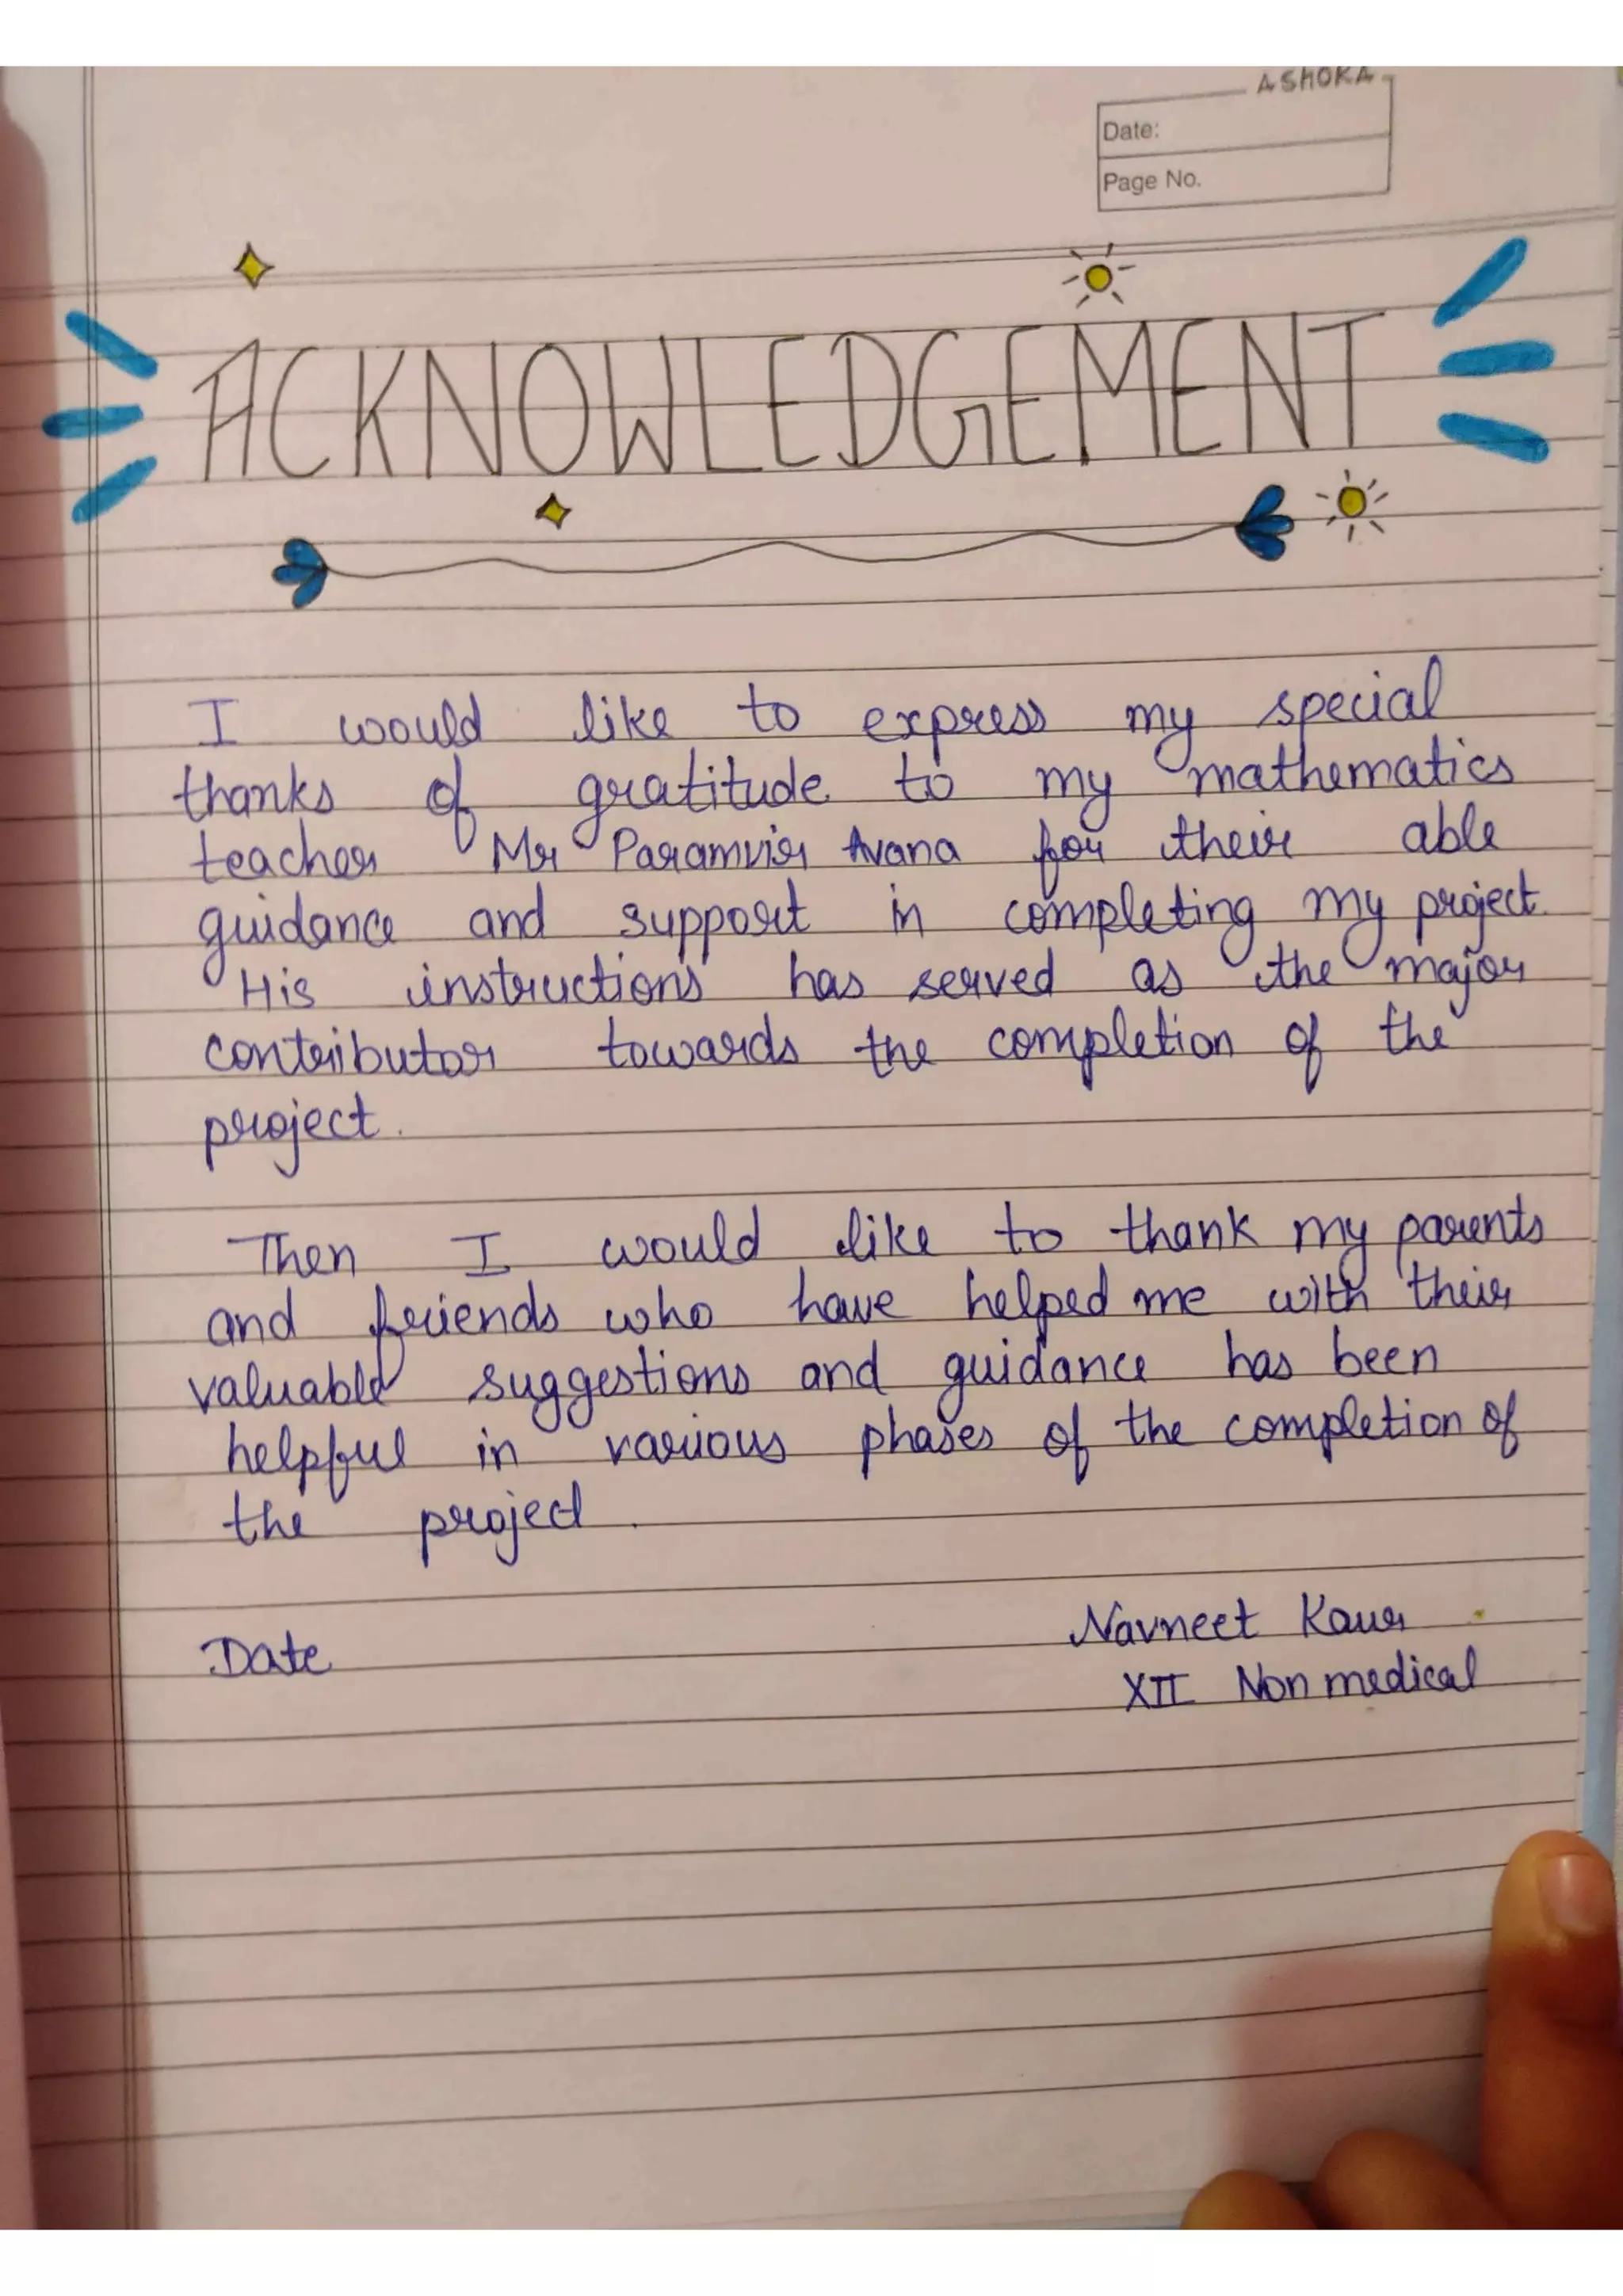 ASHOKA
Date:
Page No.
ACKNOWLEDGEMENT
I would like to express my special
thanks of gratitude to my mathematics
teacher Mr Paramvir Avana for their able
guidance and support in completing my project.
His instructions has served as the major
contributor towards the completion of the
project.
Then I would like to thank my parents
and friends who have helped me with their
valuable suggestions and guidance has been
helpful in various phases of the completion of
the project.
Date
Navneet Kaur
XII Non medical